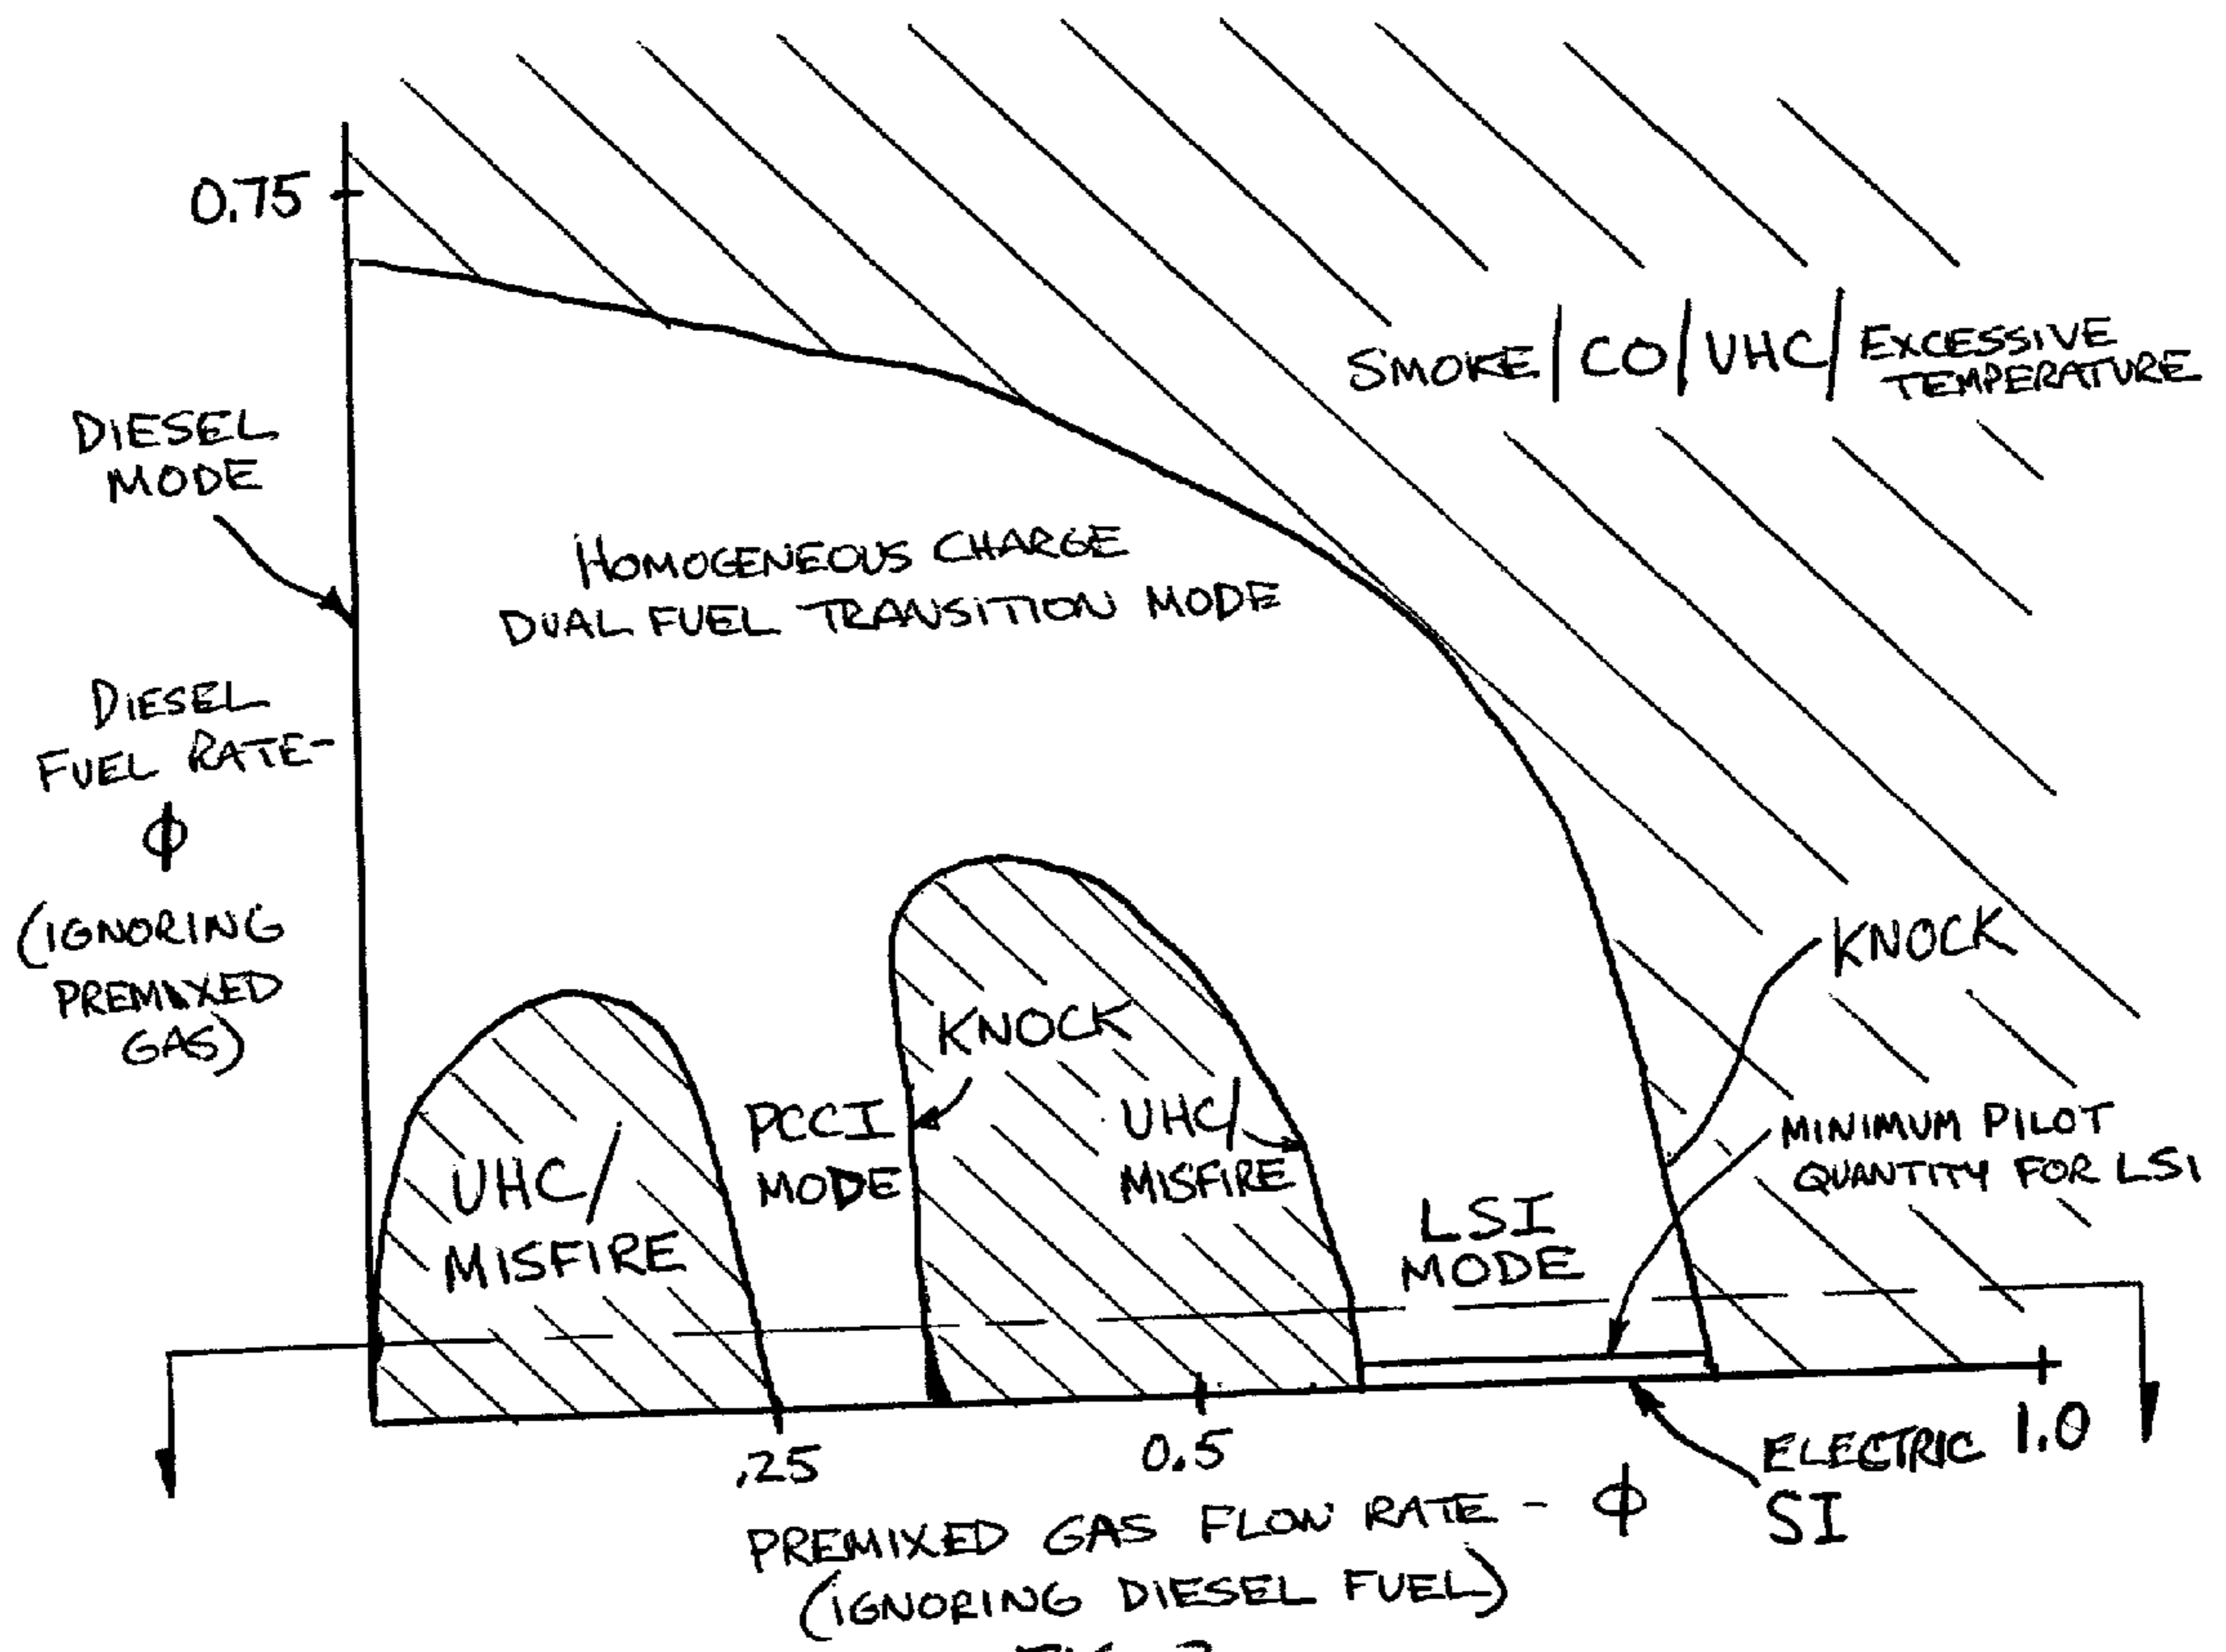 0.75
SMOKE/CO/UHC/EXCESSIVE
TEMPERATURE
DIESEL
MODE
HOMOGENEOUS CHARGE
DUAL FUEL TRANSITION MODE
DIESEL
FUEL RATE-
ϕ
(IGNORING
PREMIXED
GAS)
KNOCK
KNOCK
PCCI
MODE
UHC/
MISFIRE
UHC/
MISFIRE
MINIMUM PILOT
QUANTITY FOR LSI
LSI
MODE
.25
0.5
1.0
ELECTRIC
SI
PREMIXED GAS FLOW RATE - ϕ
(IGNORING DIESEL FUEL)